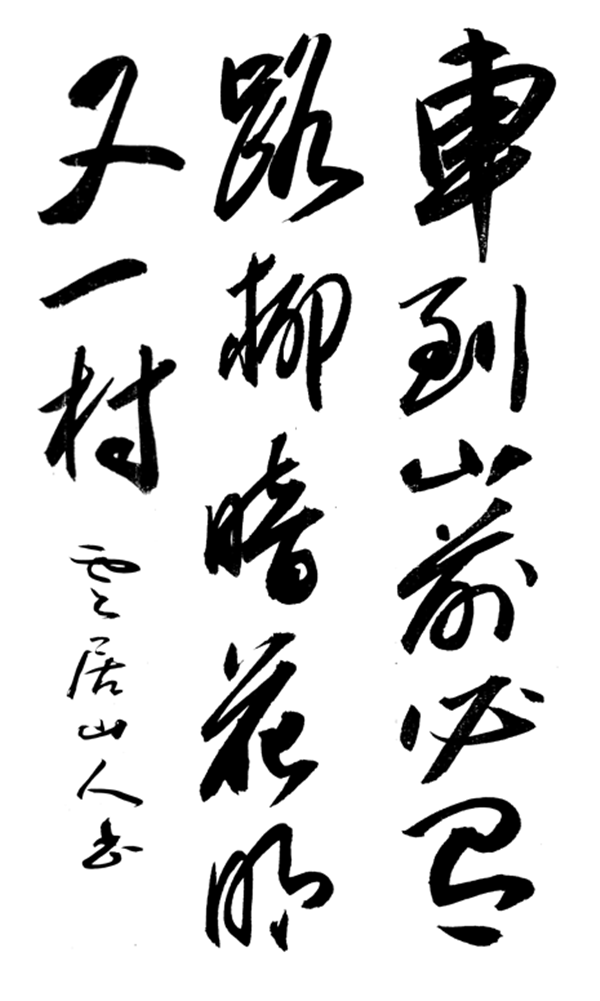 車到山前必有
路柳暗花明
又一村
雲居山人書